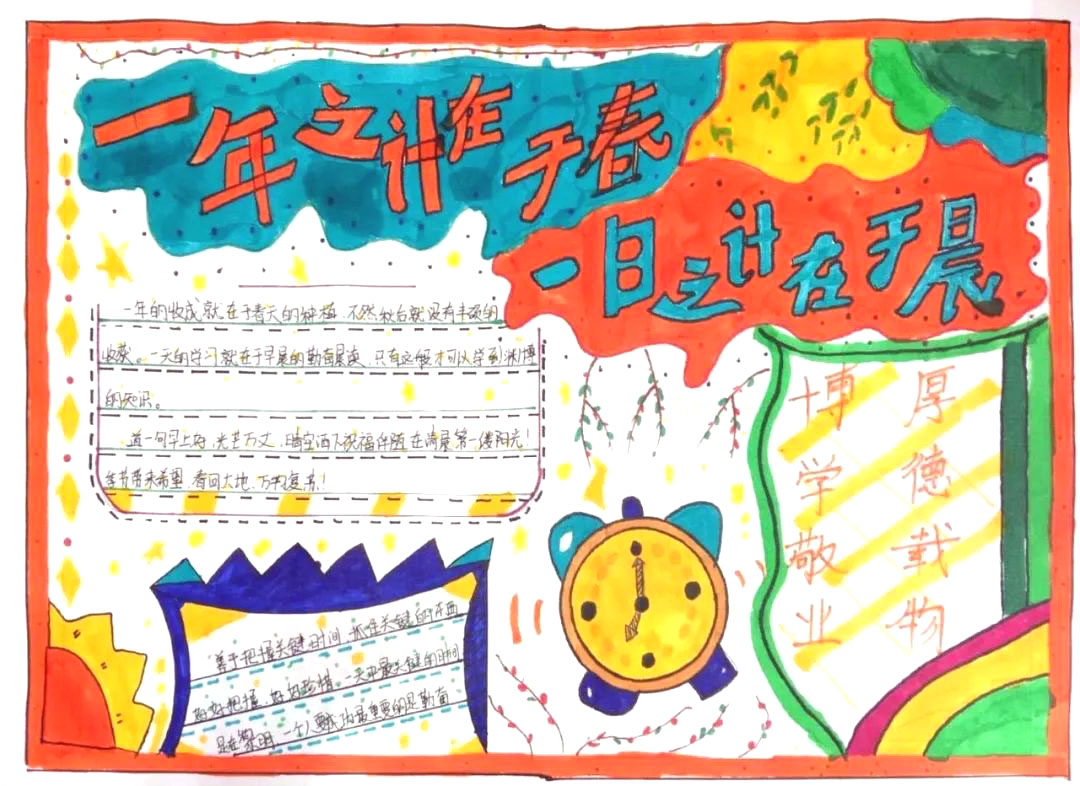 一年之计在于春
一日之计在于晨
一年的收成就在于春天的种植,不然秋后就没有丰硕的
收获。一天的学习就在于早晨的勤奋晨读,只有这样才可以学到渊博
的知识。
道一句早上好,光芒万丈,晴空洒下祝福伴随在清晨第一缕阳光!
季节带来希望,春回大地,万物复苏!
善于把握关键时间,抓住关键的东西
好好把握,好好珍惜,一天中最关键的时间
是在黎明,一个人要成功最重要的是勤奋
厚德载物
博学敬业